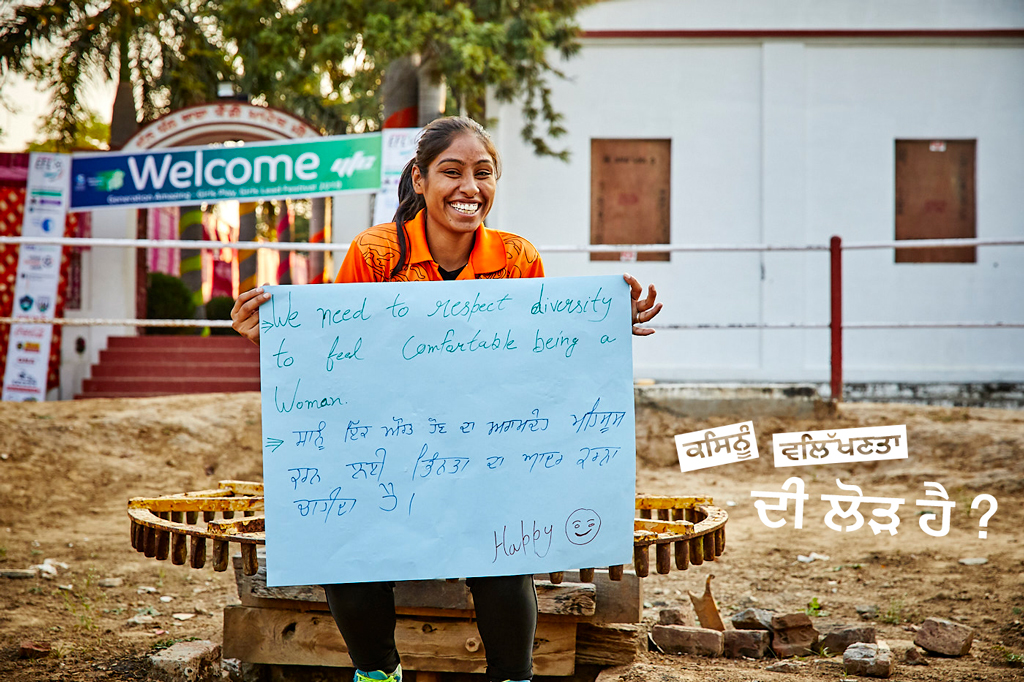 Welcome
Generation Amazing - Girls Play, Girls Lead Festival 2018
We need to respect diversity
to feel Comfortable being a
Woman.
ਸਾਨੂੰ ਇੱਕ ਔਰਤ ਹੋਣ ਦਾ ਅਰਾਮਦੇਹ ਮਹਿਸੂਸ
ਕਰਨ ਲਈ ਭਿੰਨਤਾ ਦਾ ਆਦਰ ਕਰਨਾ
ਚਾਹੀਦਾ ਹੈ।
Happy
ਕਸਿਨੂੰ ਵਲਿੱਖਣਤਾ
ਦੀ ਲੋੜ ਹੈ ?